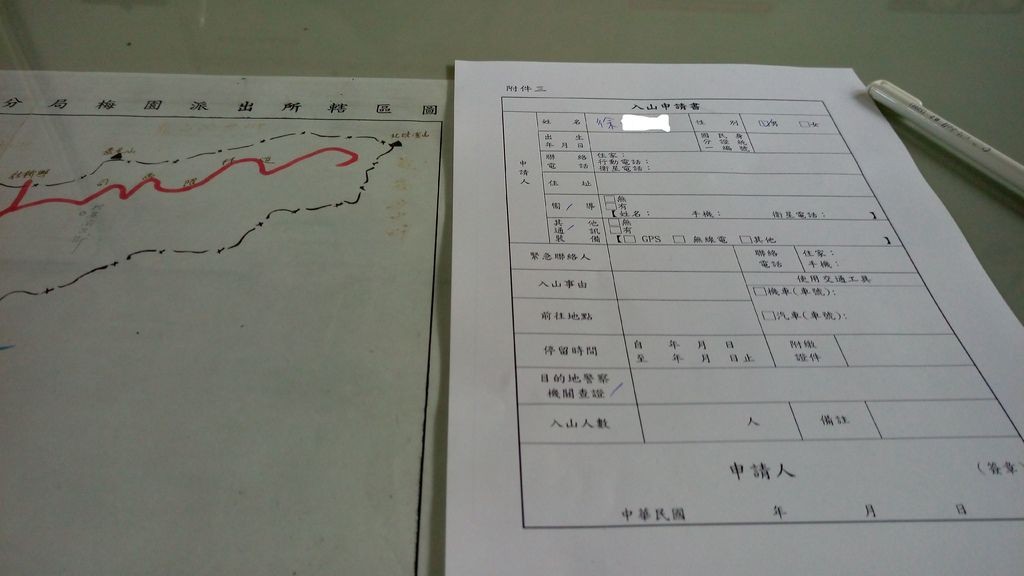 分局梅園派出所轄區圖
附件三
入山申請書
申請人
姓名 徐
性別 ☑男 □女
出生年月日
國民身分證統一編號
聯絡電話
住家：
行動電話：
衛星電話：
住址
嚮導
□無
□有
【姓名： 手機： 衛星電話： 】
其他通訊裝備
□無
□有
【□ GPS □ 無線電 □其他 】
緊急聯絡人
聯絡電話
住家：
手機：
入山事由
使用交通工具
□機車(車號)：
前往地點
□汽車(車號)：
停留時間
自 年 月 日
至 年 月 日止
附繳證件
目的地警察
機關查證
入山人數 人
備註
申請人 (簽章
中華民國 年 月 日